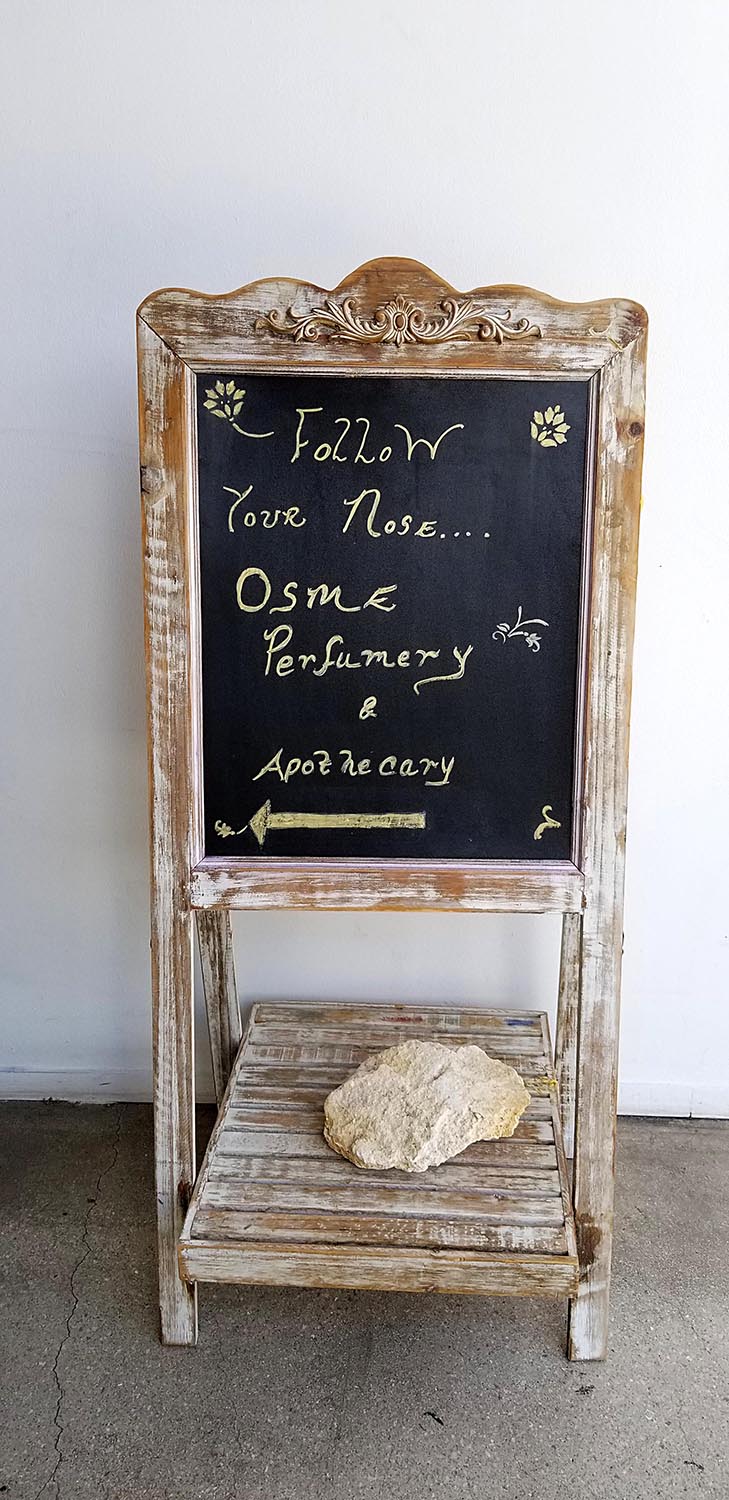 Follow
Your Nose....
Osme
Perfumery
&
Apothecary